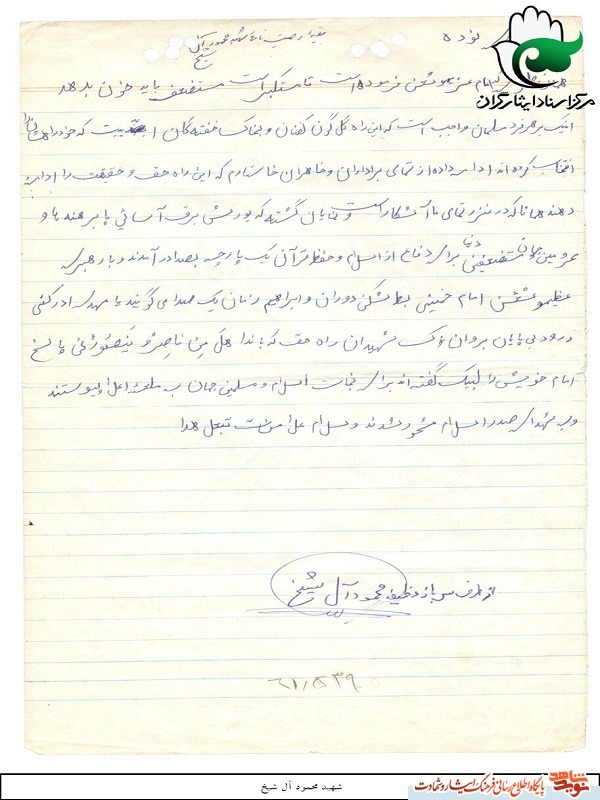 بقیه وصیت نامه شهید محمود آل شیخ
نوده
مرکز اسناد ایثارگران
امام عزیزمون فرموده است تا مستکبر است مستضعف باید خون بدهد
اینک بر هر فرد مسلمان واجب است که این راه گل گون کفنان و بخاک خفته گان که خود راه
انتخاب کرده اند ادامه داده از تمامی برادران و خاهران خاستارم که این راه حق و حقیقت را ادامه
دهند همانا که در نزر تمامی ما آشکار است و نمایان گشته که یورش برق آسائی پا برهنه ها و
محرومین جهان مستضعفین دنیا برای دفاع از اسلام و حفظ قرآن یک پارچه بصدا در آمدند و با رهبری
امام خمینی بط شکن دوران و ابراهیم زمان یک صدا می گویند یا مهدی ادرکنی
درود بی پایان بروان پاک شهیدان راه حق که با ندا هل من ناصر ینصرنی پاسخ
امام خویش را لبیک گفته اند برای نجات اسلام و مسلمین جهان به اعلا پیوستند
و به شهدای صدر اسلام محشور شدند و سلام علا من تبعل هدا
از طرف سرباز وظیفه محمود آل شیخ
۶۱/۵/۳۹
شهید محمود آل شیخ
نوید شاهد
پایگاه اطلاع رسانی فرهنگ ایثار و شهادت